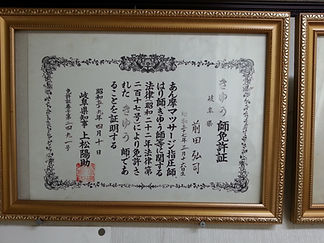 きゅう師免許証
岐阜県
前田弘司
あん摩マツサージ指圧師
はり師きゆう師等に関する
法律（昭和二十二年法律第
二百十七号）により免許さ
れたきゅう師であ
ることを証明する
昭和五十年四月十日
岐阜県知事 上松陽助